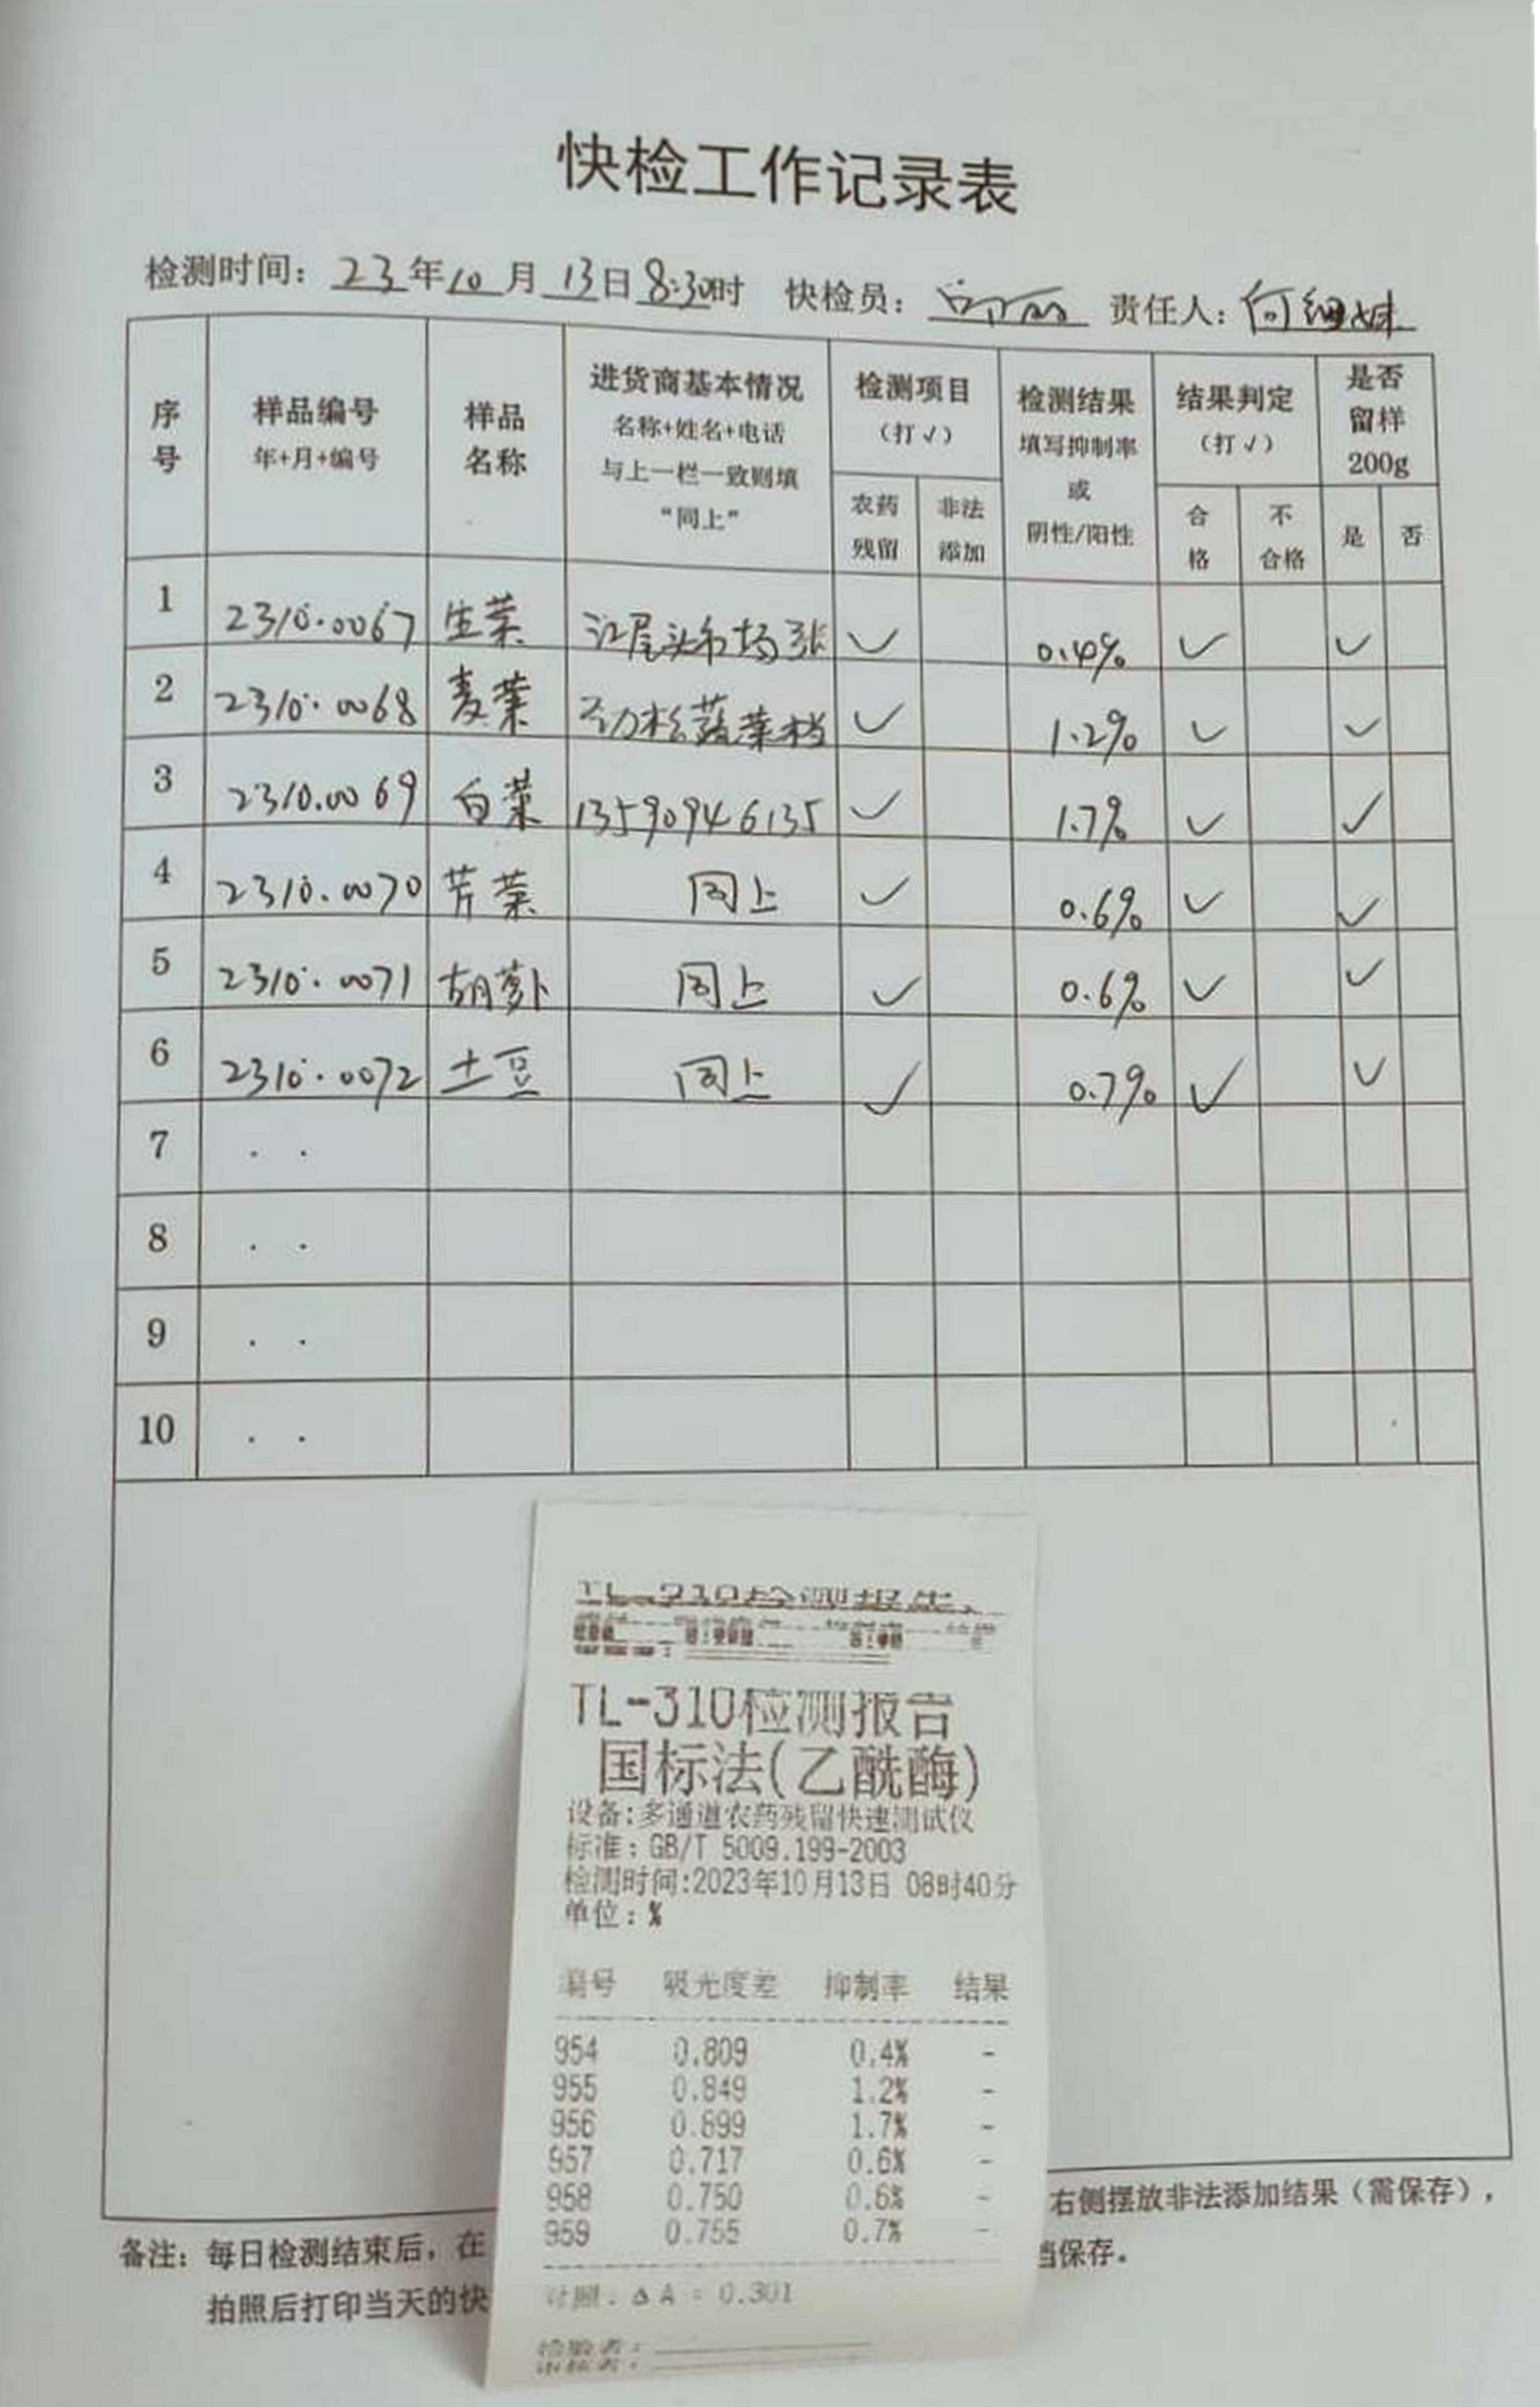 快检工作记录表
检测时间：23年10月13日8:30时 快检员： 责任人：何细妹
序号 样品编号 年+月+编号 样品名称 进货商基本情况 名称+姓名+电话 与上一栏一致则填“同上” 检测项目（打√） 检测结果 填写抑制率或阴性/阳性 结果判定（打√） 是否留样200g
农药残留 非法添加 合格 不合格 是 否
1 2310.0067 生菜 江尾头市场张 ✓ 0.4% ✓ ✓
2 2310.0068 麦菜 劲松蔬菜档 ✓ 1.2% ✓ ✓
3 2310.0069 白菜 13590946135 ✓ 1.7% ✓ ✓
4 2310.0070 芹菜 同上 ✓ 0.6% ✓ ✓
5 2310.0071 胡萝卜 同上 ✓ 0.6% ✓ ✓
6 2310.0072 土豆 同上 ✓ 0.7% ✓ ✓
7 . .
8 . .
9 . .
10 . .
TL-310检测报告
国标法(乙酰酶)
设备:多通道农药残留快速测试仪
标准：GB/T 5009.199-2003
检测时间:2023年10月13日 08时40分
单位：%
编号 吸光度差 抑制率 结果
954 0.809 0.4% -
955 0.849 1.2% -
956 0.899 1.7% -
957 0.717 0.6% -
958 0.750 0.6% -
959 0.755 0.7% -
对照：ΔA = 0.301
检验者：
审核者：
备注：每日检测结束后，在 右侧摆放非法添加结果（需保存），
拍照后打印当天的快 当保存。